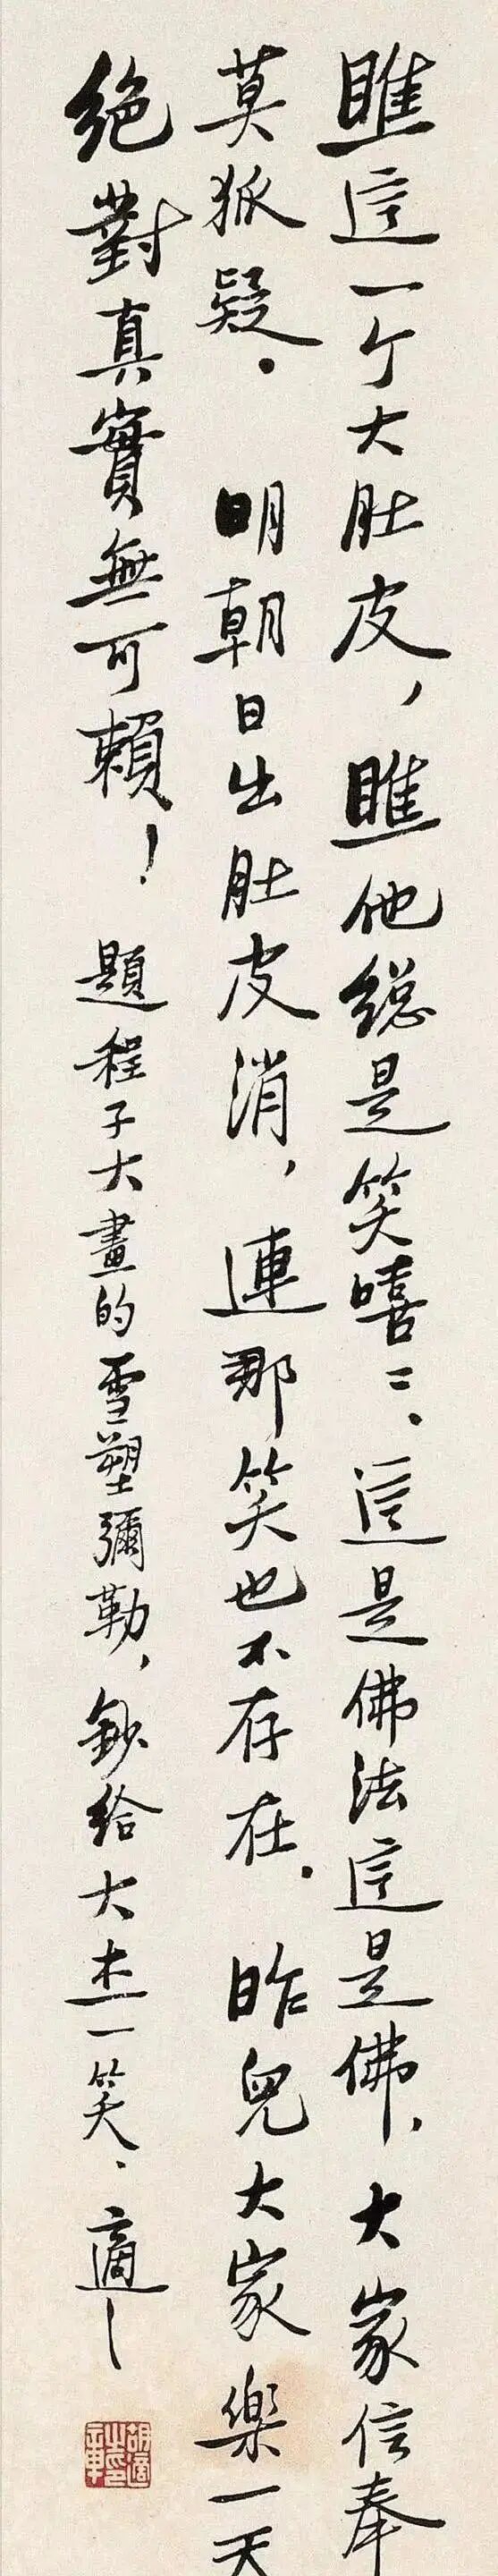 瞧這一个大肚皮，瞧他總是笑嘻〻．這是佛法這是佛，大家信奉
莫狐疑．明朝日出肚皮消，連那笑也不存在．昨兒大家樂一天
絕對真實無可賴！題程子大畫的雪塑彌勒，鈔給大杰一笑．適
胡適之印章